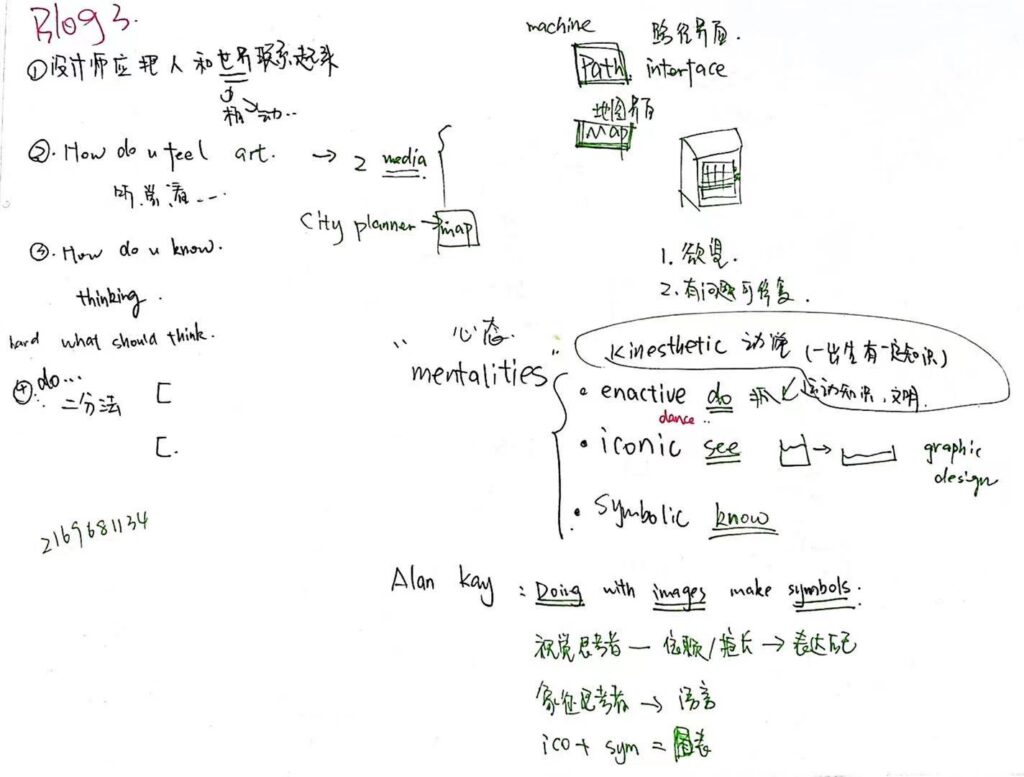 Blog 3.
①设计师应把人和世界联系起来
相 动...
②. How do u feel art. → 2 media
听.觉.看...
City planner → map
③. How do u know.
thinking.
hard what should think.
④ do...
二分法
2169681134
machine 路径界面.
Path interface
地图界面
Map
1. 欲望.
2. 有问题可修复.
“ 心态. ”
mentalities
Kinesthetic 动觉 (一出生有一定知识)
• enactive do 运动知识、文明.
dance..
• iconic see → graphic design
• Symbolic know
Alan Kay: Doing with images make symbols.
视觉思考者 — 依赖/擅长 → 表达自己
象征思考者 → 语言
ico + sym = 图表